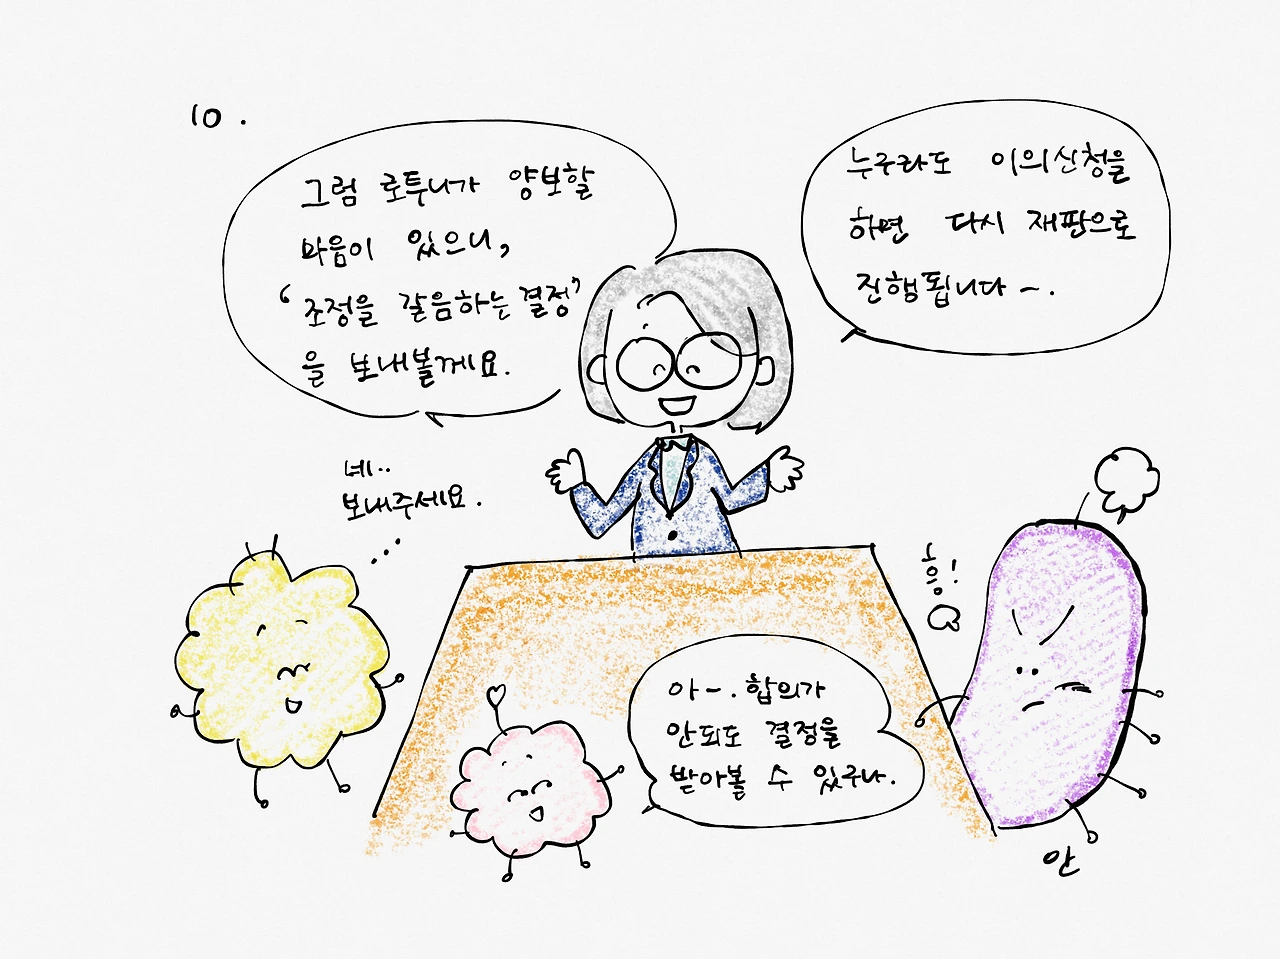 10.
그럼 로투니가 양보할
마음이 있으니,
‘조정을 갈음하는 결정’
을 보내볼께요.
누구라도 이의신청을
하면 다시 재판으로
진행됩니다~.
네..
보내주세요.
흥!
아~. 합의가
안되도 결정을
받아볼 수 있구나.
안